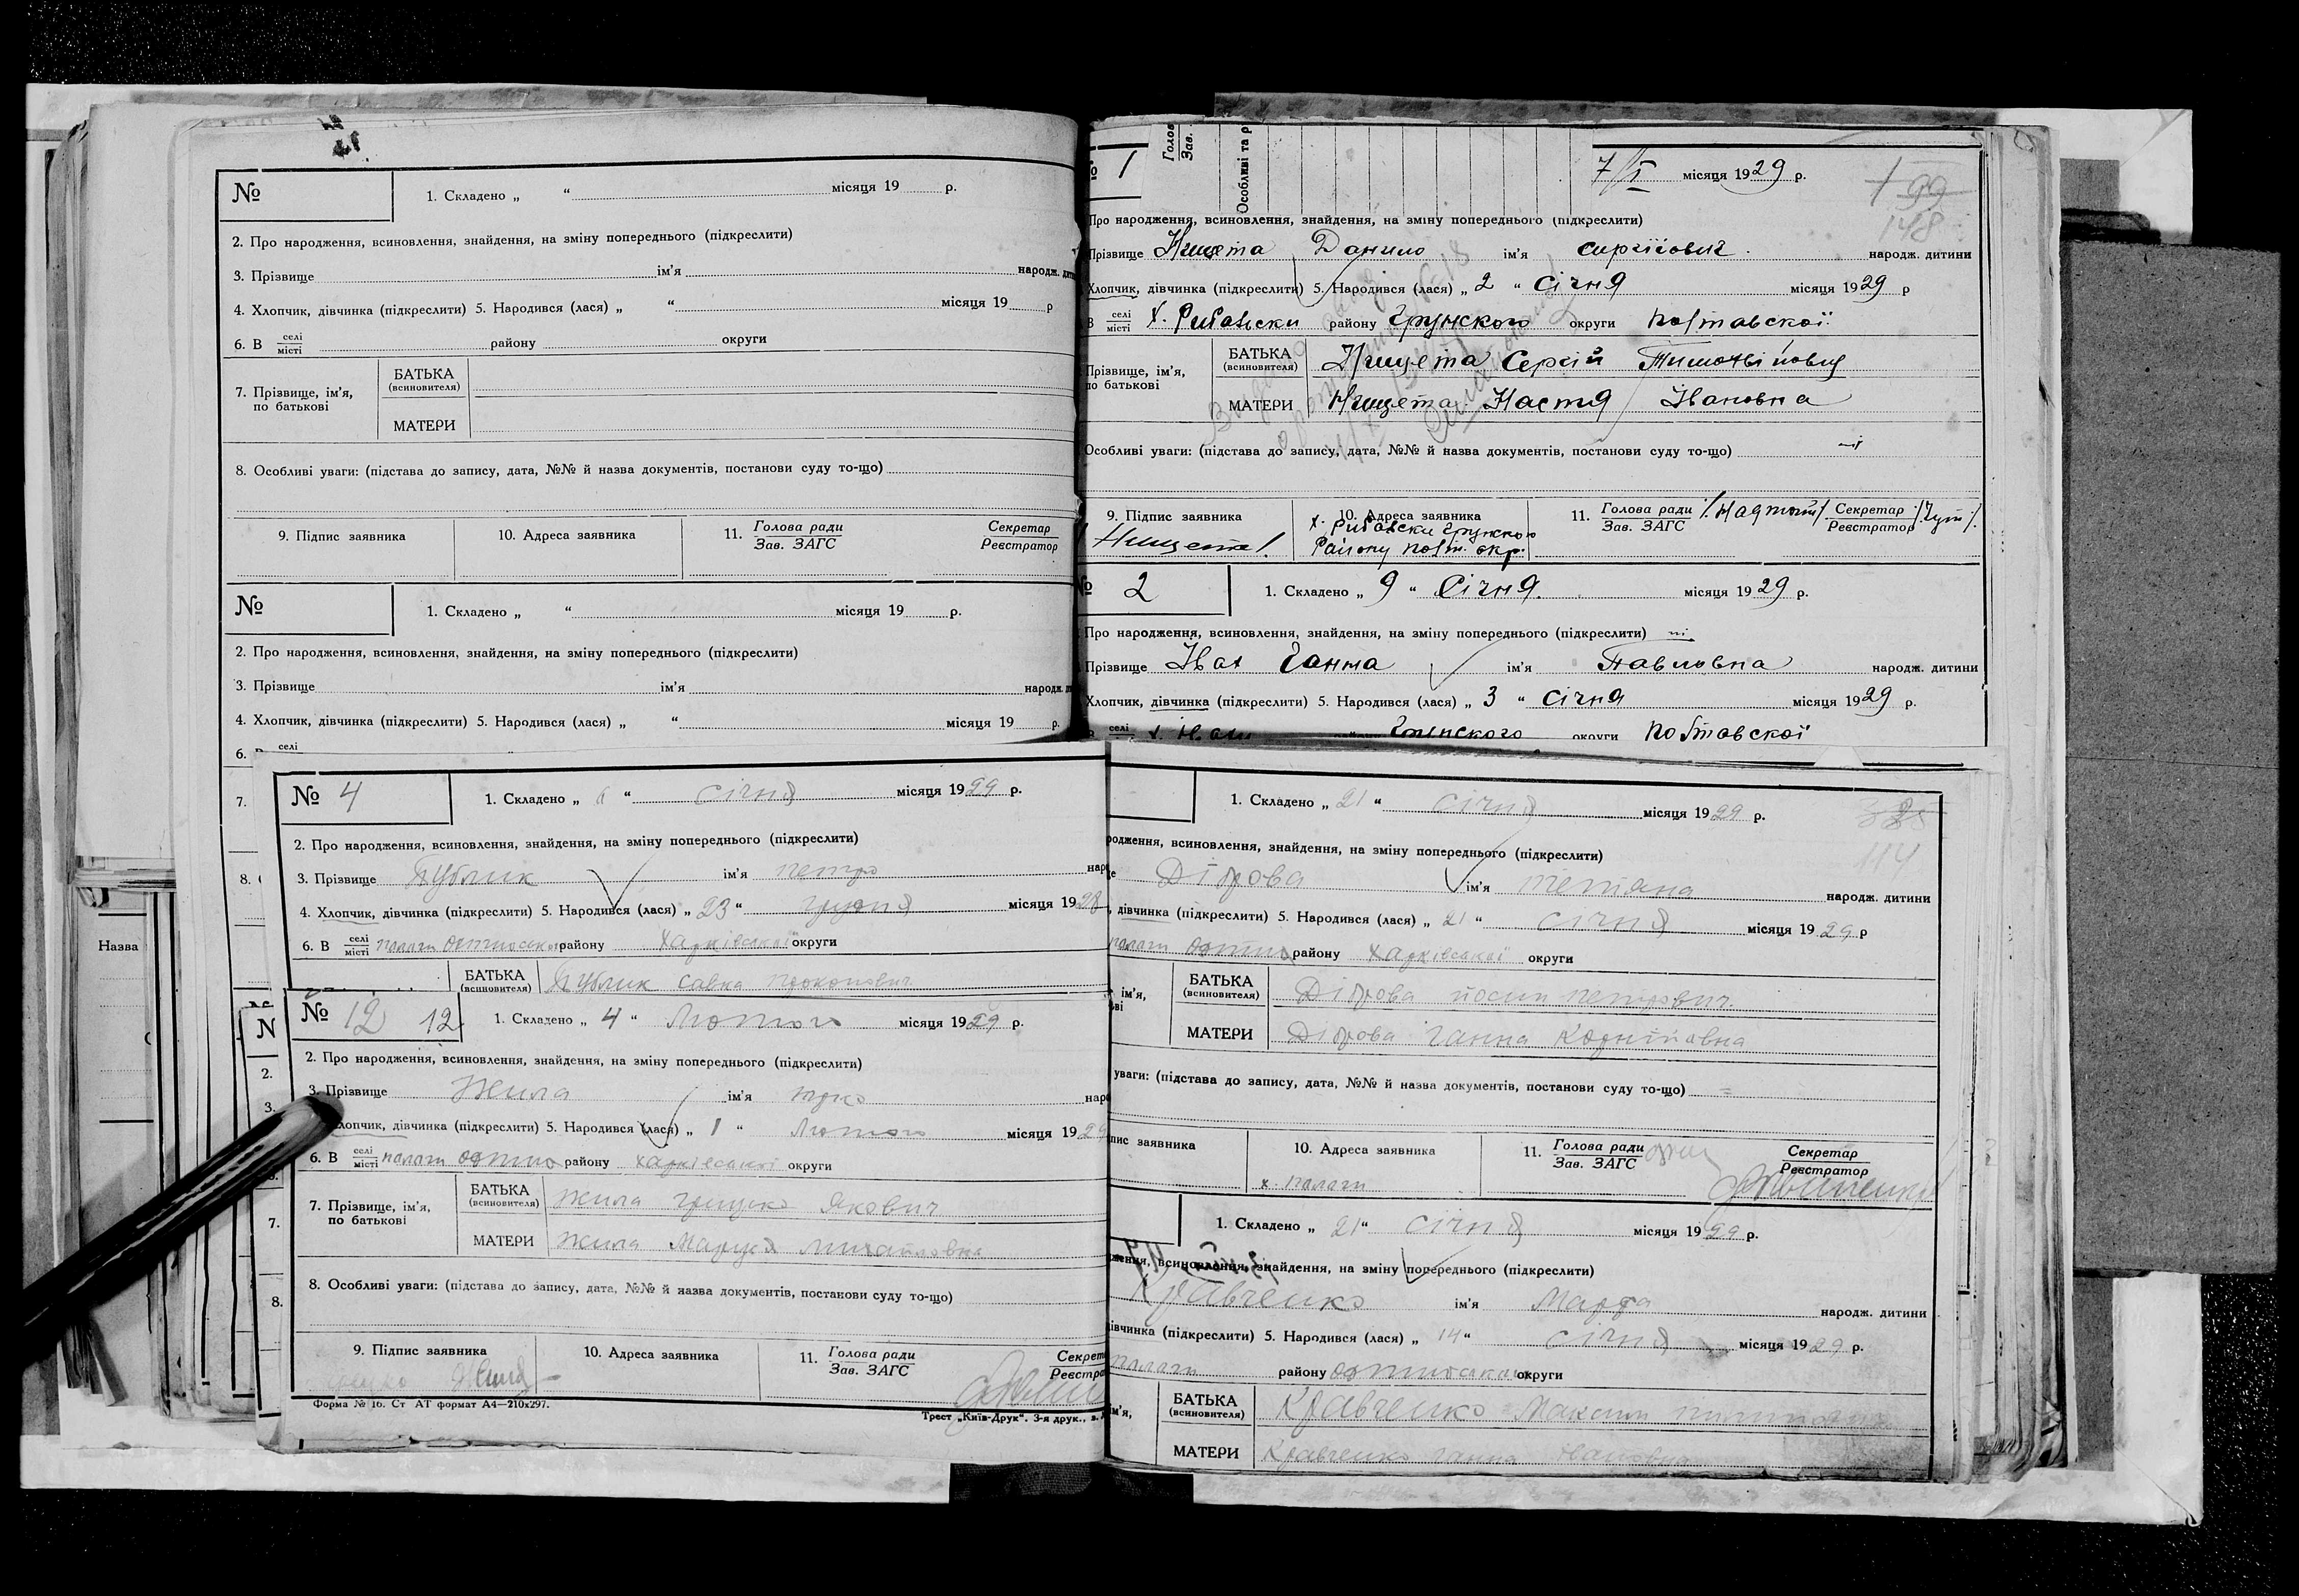 №
1. Складено „ “ місяця 19 р.
2. Про народження, всиновлення, знайдення, на зміну попереднього (підкреслити)
3. Прізвище ім’я народж.
4. Хлопчик, дівчинка (підкреслити) 5. Народився (лася) „ “ місяця 19 р
6. В селі місті району округи
7. Прізвище, ім’я, по батькові
БАТЬКА (всиновителя)
МАТЕРИ
8. Особливі уваги: (підстава до запису, дата, №№ й назва документів, постанови суду то-що)
9. Підпис заявника 10. Адреса заявника 11. Голова ради Зав. ЗАГС Секретар Реєстратор
№
1. Складено „ “ місяця 19 р.
2. Про народження, всиновлення, знайдення, на зміну попереднього (підкреслити)
3. Прізвище ім’я народж.
4. Хлопчик, дівчинка (підкреслити) 5. Народився (лася) „ “ місяця 19 р.
6. селі
7.
8.
Назва
№ 4
1. Складено „ “ січня місяця 1929 р.
2. Про народження, всиновлення, знайдення, на зміну попереднього (підкреслити)
3. Прізвище Публик ім’я петро
4. Хлопчик, дівчинка (підкреслити) 5. Народився (лася) „ 23 “ грудня місяця 1928
6. В селі місті палаги району Харківської округи
БАТЬКА (всиновителя) Публик Савка прокопович
№ 12 12.
1. Складено „ 4 “ Лютого місяця 1929 р.
2. Про народження, всиновлення, знайдення, на зміну попереднього (підкреслити)
3. Прізвище Жила ім’я
Хлопчик, дівчинка (підкреслити) 5. Народився (лася) „ 1 “ Лютого місяця 1929
6. В селі місті палаги району округи
7. Прізвище, ім’я, по батькові
БАТЬКА (всиновителя) Жила грицько Якович
МАТЕРИ Жила Маруся Михайловна
8. Особливі уваги: (підстава до запису, дата, №№ й назва документів, постанови суду то-що)
9. Підпис заявника 10. Адреса заявника 11. Голова ради Зав. ЗАГС
Жила
Форма № 16. Ст АТ формат А4—210x297.
Трест „Київ-Друк“. 3-я друк.,
Голов Зав.
Особливі та р
№ 1
7/I місяця 1929 р.
199
148
Про народження, всиновлення, знайдення, на зміну попереднього (підкреслити)
Прізвище Нищета Данило ім’я сиргійович народж. дитини
Хлопчик, дівчинка (підкреслити) 5. Народився (лася) „ 2 “ Січня місяця 1929 р
В селі місті х. району Грунского округи Полтавскої
Прізвище, ім’я, по батькові
БАТЬКА (всиновителя) Нищета Сергій Тимофійович
МАТЕРИ Нищета Настя Івановна
Особливі уваги: (підстава до запису, дата, №№ й назва документів, постанови суду то-що)
9. Підпис заявника 10. Адреса заявника 11. Голова ради Зав. ЗАГС Секретар Реєстратор
/Нищета/.
Району Полт. окр.
№ 2
1. Складено „ 9 “ Січня. місяця 1929 р.
Про народження, всиновлення, знайдення, на зміну попереднього (підкреслити)
Прізвище Івах Ганна ім’я Павловна народж. дитини
Хлопчик, дівчинка (підкреслити) 5. Народився (лася) „ 3 “ Січня місяця 1929 р.
селі Грунского округи Полтавскої
1. Складено „ 21 “ Січня місяця 1929 р.
114
родження, всиновлення, знайдення, на зміну попереднього (підкреслити)
Діброва ім’я тетяна народж. дитини
дівчинка (підкреслити) 5. Народився (лася) „ 21 “ січня місяця 1929 р
палаги району Харківської округи
БАТЬКА (всиновителя) Діброва йосип петрович
МАТЕРИ Діброва Ганна Корніївна
уваги: (підстава до запису, дата, №№ й назва документів, постанови суду то-що)
10. Адреса заявника 11. Голова ради Зав. ЗАГС Секретар Реєстратор
х палаги
1. Складено „ 21 “ Січня місяця 1929 р.
всиновлення, знайдення, на зміну попереднього (підкреслити)
Кравченко ім’я Марфа народж. дитини
дівчинка (підкреслити) 5. Народився (лася) „ 14 “ січня місяця 1929 р.
палаги району округи
БАТЬКА (всиновителя) Кравченко Максим
МАТЕРИ Кравченко ганна Івановна